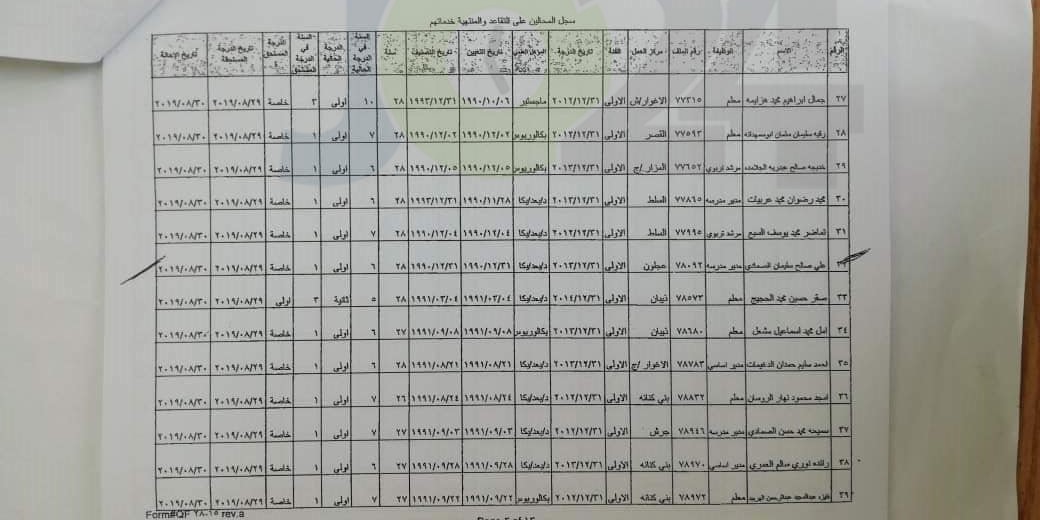 سجل المحالين على التقاعد والمنتهية خدماتهم
الرقم الاسم الوظيفة رقم الملف مركز العمل الفئة تاريخ الدرجة المؤهل العلمي تاريخ التعيين تاريخ التصنيف السنة في الدرجة الحالية الدرجة الحالية السنة في الدرجة المستحق الدرجة المستحقة تاريخ الدرجة المستحقة تاريخ الاحالة
٢٧ جمال ابراهيم محمد هزايمه معلم ٧٧٣١٥ الاغوار/ش الاولى ٢٠١٢/١٢/٣١ ماجستير ١٩٩٠/١٠/٠٦ ١٩٩٣/١٢/٣١ ٢٨ ١٠ اولى ٣ خاصة ٢٠١٩/٠٨/٢٩ ٢٠١٩/٠٨/٣٠
٢٨ رقيه سليمان سلمان معلم ٧٧٥٩٣ القصر الاولى ٢٠١٢/١٢/٣١ بكالوريوس ١٩٩٠/١٢/٠٢ ١٩٩٠/١٢/٠٢ ٢٨ ٧ اولى ١ خاصة ٢٠١٩/٠٨/٢٩ ٢٠١٩/٠٨/٣٠
٢٩ خديجه صالح مرشد تربوي ٧٧٦٥٢ المزار /ج الاولى ٢٠١٣/١٢/٣١ بكالوريوس ١٩٩٠/١٢/٠٥ ١٩٩٠/١٢/٠٥ ٢٨ ٦ اولى ١ خاصة ٢٠١٩/٠٨/٢٩ ٢٠١٩/٠٨/٣٠
٣٠ محمد رضوان محمد عربيات مدير مدرسه ٧٧٨٦٥ السلط الاولى ٢٠١٣/١٢/٣١ د/بعد/بكا ١٩٩٠/١١/٢٨ ١٩٩٣/١٢/٣١ ٢٨ ٦ اولى ١ خاصة ٢٠١٩/٠٨/٢٩ ٢٠١٩/٠٨/٣٠
٣١ تماضر محمد يوسف السبع مرشد تربوي ٧٧٩٩٥ السلط الاولى ٢٠١٢/١٢/٣١ د/بعد/بكا ١٩٩٠/١٢/٠٤ ١٩٩٠/١٢/٠٤ ٢٨ ٧ اولى ١ خاصة ٢٠١٩/٠٨/٢٩ ٢٠١٩/٠٨/٣٠
٣٢ علي صالح سليمان الصمادي مدير مدرسه ٧٨٠٩٢ عجلون الاولى ٢٠١٣/١٢/٣١ د/بعد/بكا ١٩٩٠/١٢/٣١ ١٩٩٠/١٢/٣١ ٢٨ ٦ اولى ١ خاصة ٢٠١٩/٠٨/٢٩ ٢٠١٩/٠٨/٣٠
٣٣ صقر حسين محمد الحجيج معلم ٧٨٥٧٣ ذيبان الاولى ٢٠١٤/١٢/٣١ د/بعد/بكا ١٩٩١/٠٣/٠٤ ١٩٩١/٠٣/٠٤ ٢٨ ٥ ثانية ٣ اولى ٢٠١٩/٠٨/٢٩ ٢٠١٩/٠٨/٣٠
٣٤ امل محمد اسماعيل مشعل معلم ٧٨٦٨٠ ذيبان الاولى ٢٠١٣/١٢/٣١ بكالوريوس ١٩٩١/٠٩/٠٨ ١٩٩١/٠٩/٠٨ ٢٧ ٦ اولى ١ خاصة ٢٠١٩/٠٨/٢٩ ٢٠١٩/٠٨/٣٠
٣٥ احمد سليم حمدان الدغيمات مدير اساسي ٧٨٧٨٣ الاغوار /ج الاولى ٢٠١٣/١٢/٣١ د/بعد/بكا ١٩٩١/٠٨/٢١ ١٩٩١/٠٨/٢١ ٢٨ ٦ اولى ١ خاصة ٢٠١٩/٠٨/٢٩ ٢٠١٩/٠٨/٣٠
٣٦ امجد محمود نهار الروسان معلم ٧٨٨٣٢ بني كنانه الاولى ٢٠١٢/١٢/٣١ د/بعد/بكا ١٩٩١/٠٨/٢٤ ١٩٩١/٠٨/٢٤ ٢٦ ٧ اولى ١ خاصة ٢٠١٩/٠٨/٢٩ ٢٠١٩/٠٨/٣٠
٣٧ سميحه محمد حسن الصمادي مدير مدرسه ٧٨٩٤٦ جرش الاولى ٢٠١٢/١٢/٣١ د/بعد/بكا ١٩٩١/٠٩/٠٣ ١٩٩١/٠٩/٠٣ ٢٧ ٧ اولى ١ خاصة ٢٠١٩/٠٨/٢٩ ٢٠١٩/٠٨/٣٠
٣٨ رائده نوري سالم العمري مدير اساسي ٧٨٩٧٠ بني كنانه الاولى ٢٠١٣/١٢/٣١ د/بعد/بكا ١٩٩١/٠٩/٢٨ ١٩٩١/٠٩/٢٨ ٢٧ ٦ اولى ١ خاصة ٢٠١٩/٠٨/٢٩ ٢٠١٩/٠٨/٣٠
٣٩ معلم ٧٨٩٧٢ بني كنانه الاولى ٢٠١٢/١٢/٣١ بكالوريوس ١٩٩١/٠٩/٢٢ ١٩٩١/٠٩/٢٢ ٢٧ ٧ اولى ١ خاصة ٢٠١٩/٠٨/٢٩ ٢٠١٩/٠٨/٣٠
Form#QF ٢٨-١٥ rev.a